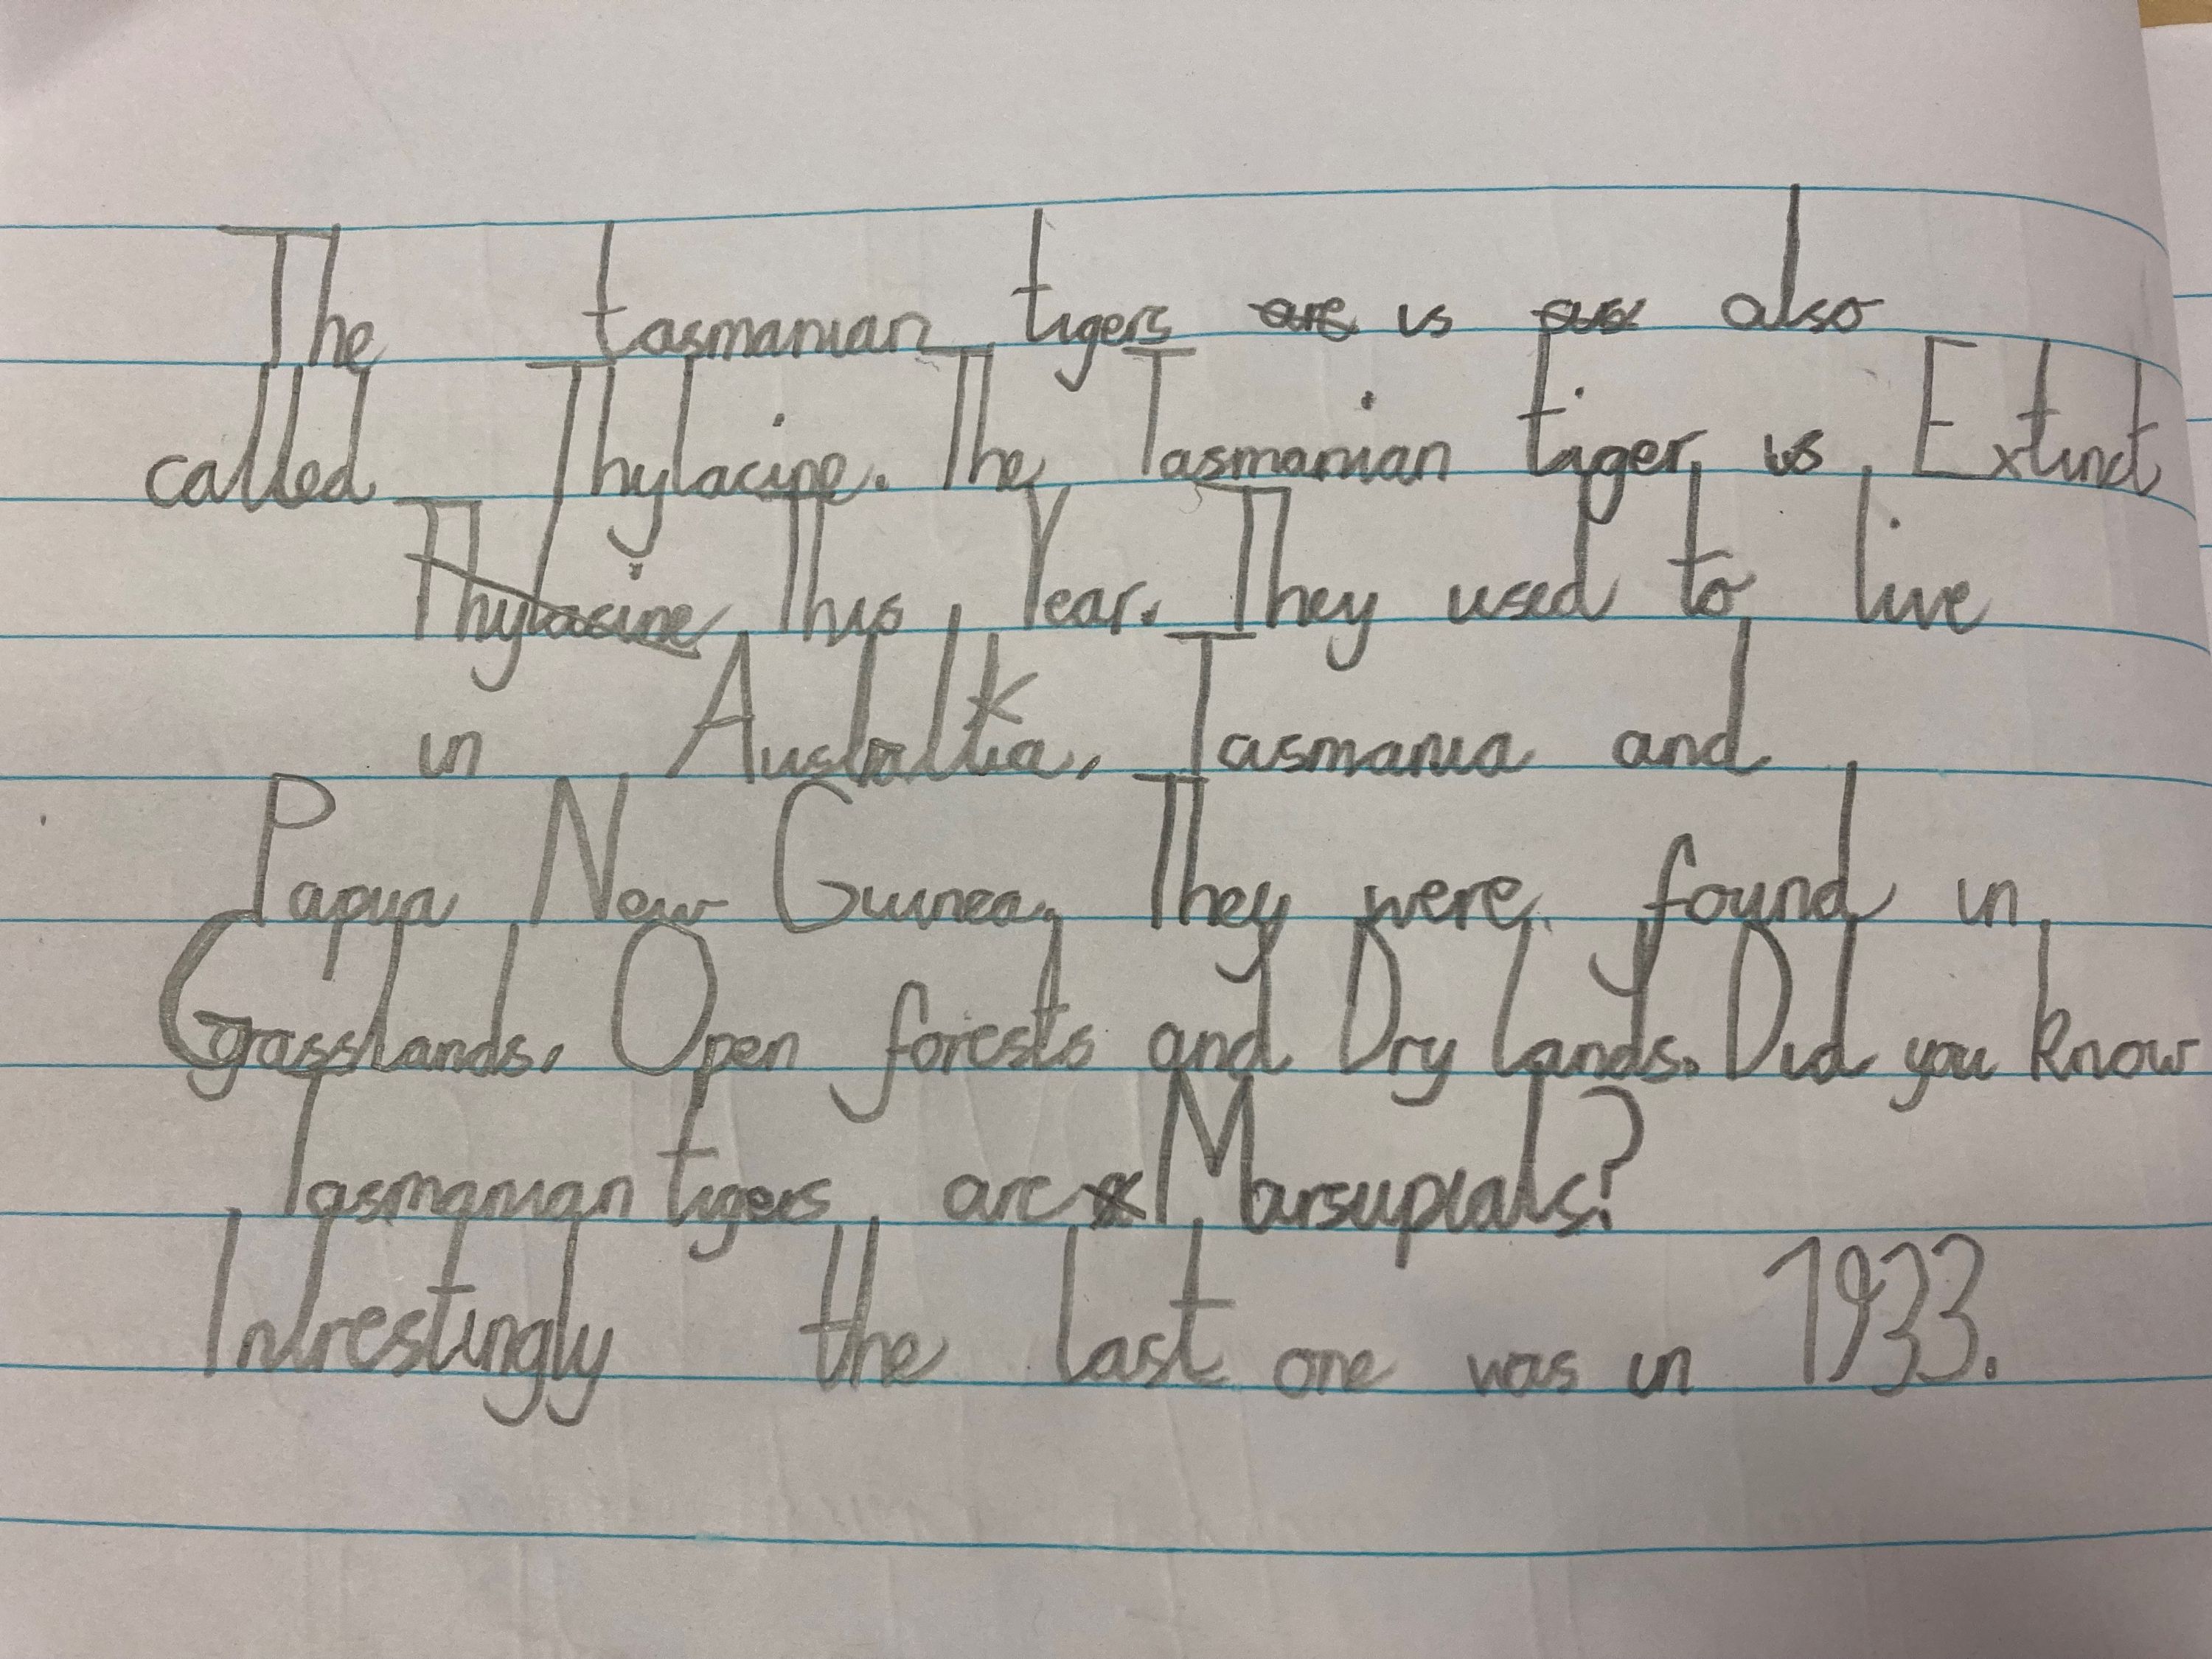 The tasmanian tigers is also
called Thylacine. The Tasmanian tiger is Extinct
This Year. They used to live
in Australia, Tasmania and
Papua New Guinea. They were found in
Grasslands, Open forests and Dry lands. Did you know
Tasmanian tigers are Marsupials?
Intrestingly the last one was in 1933.